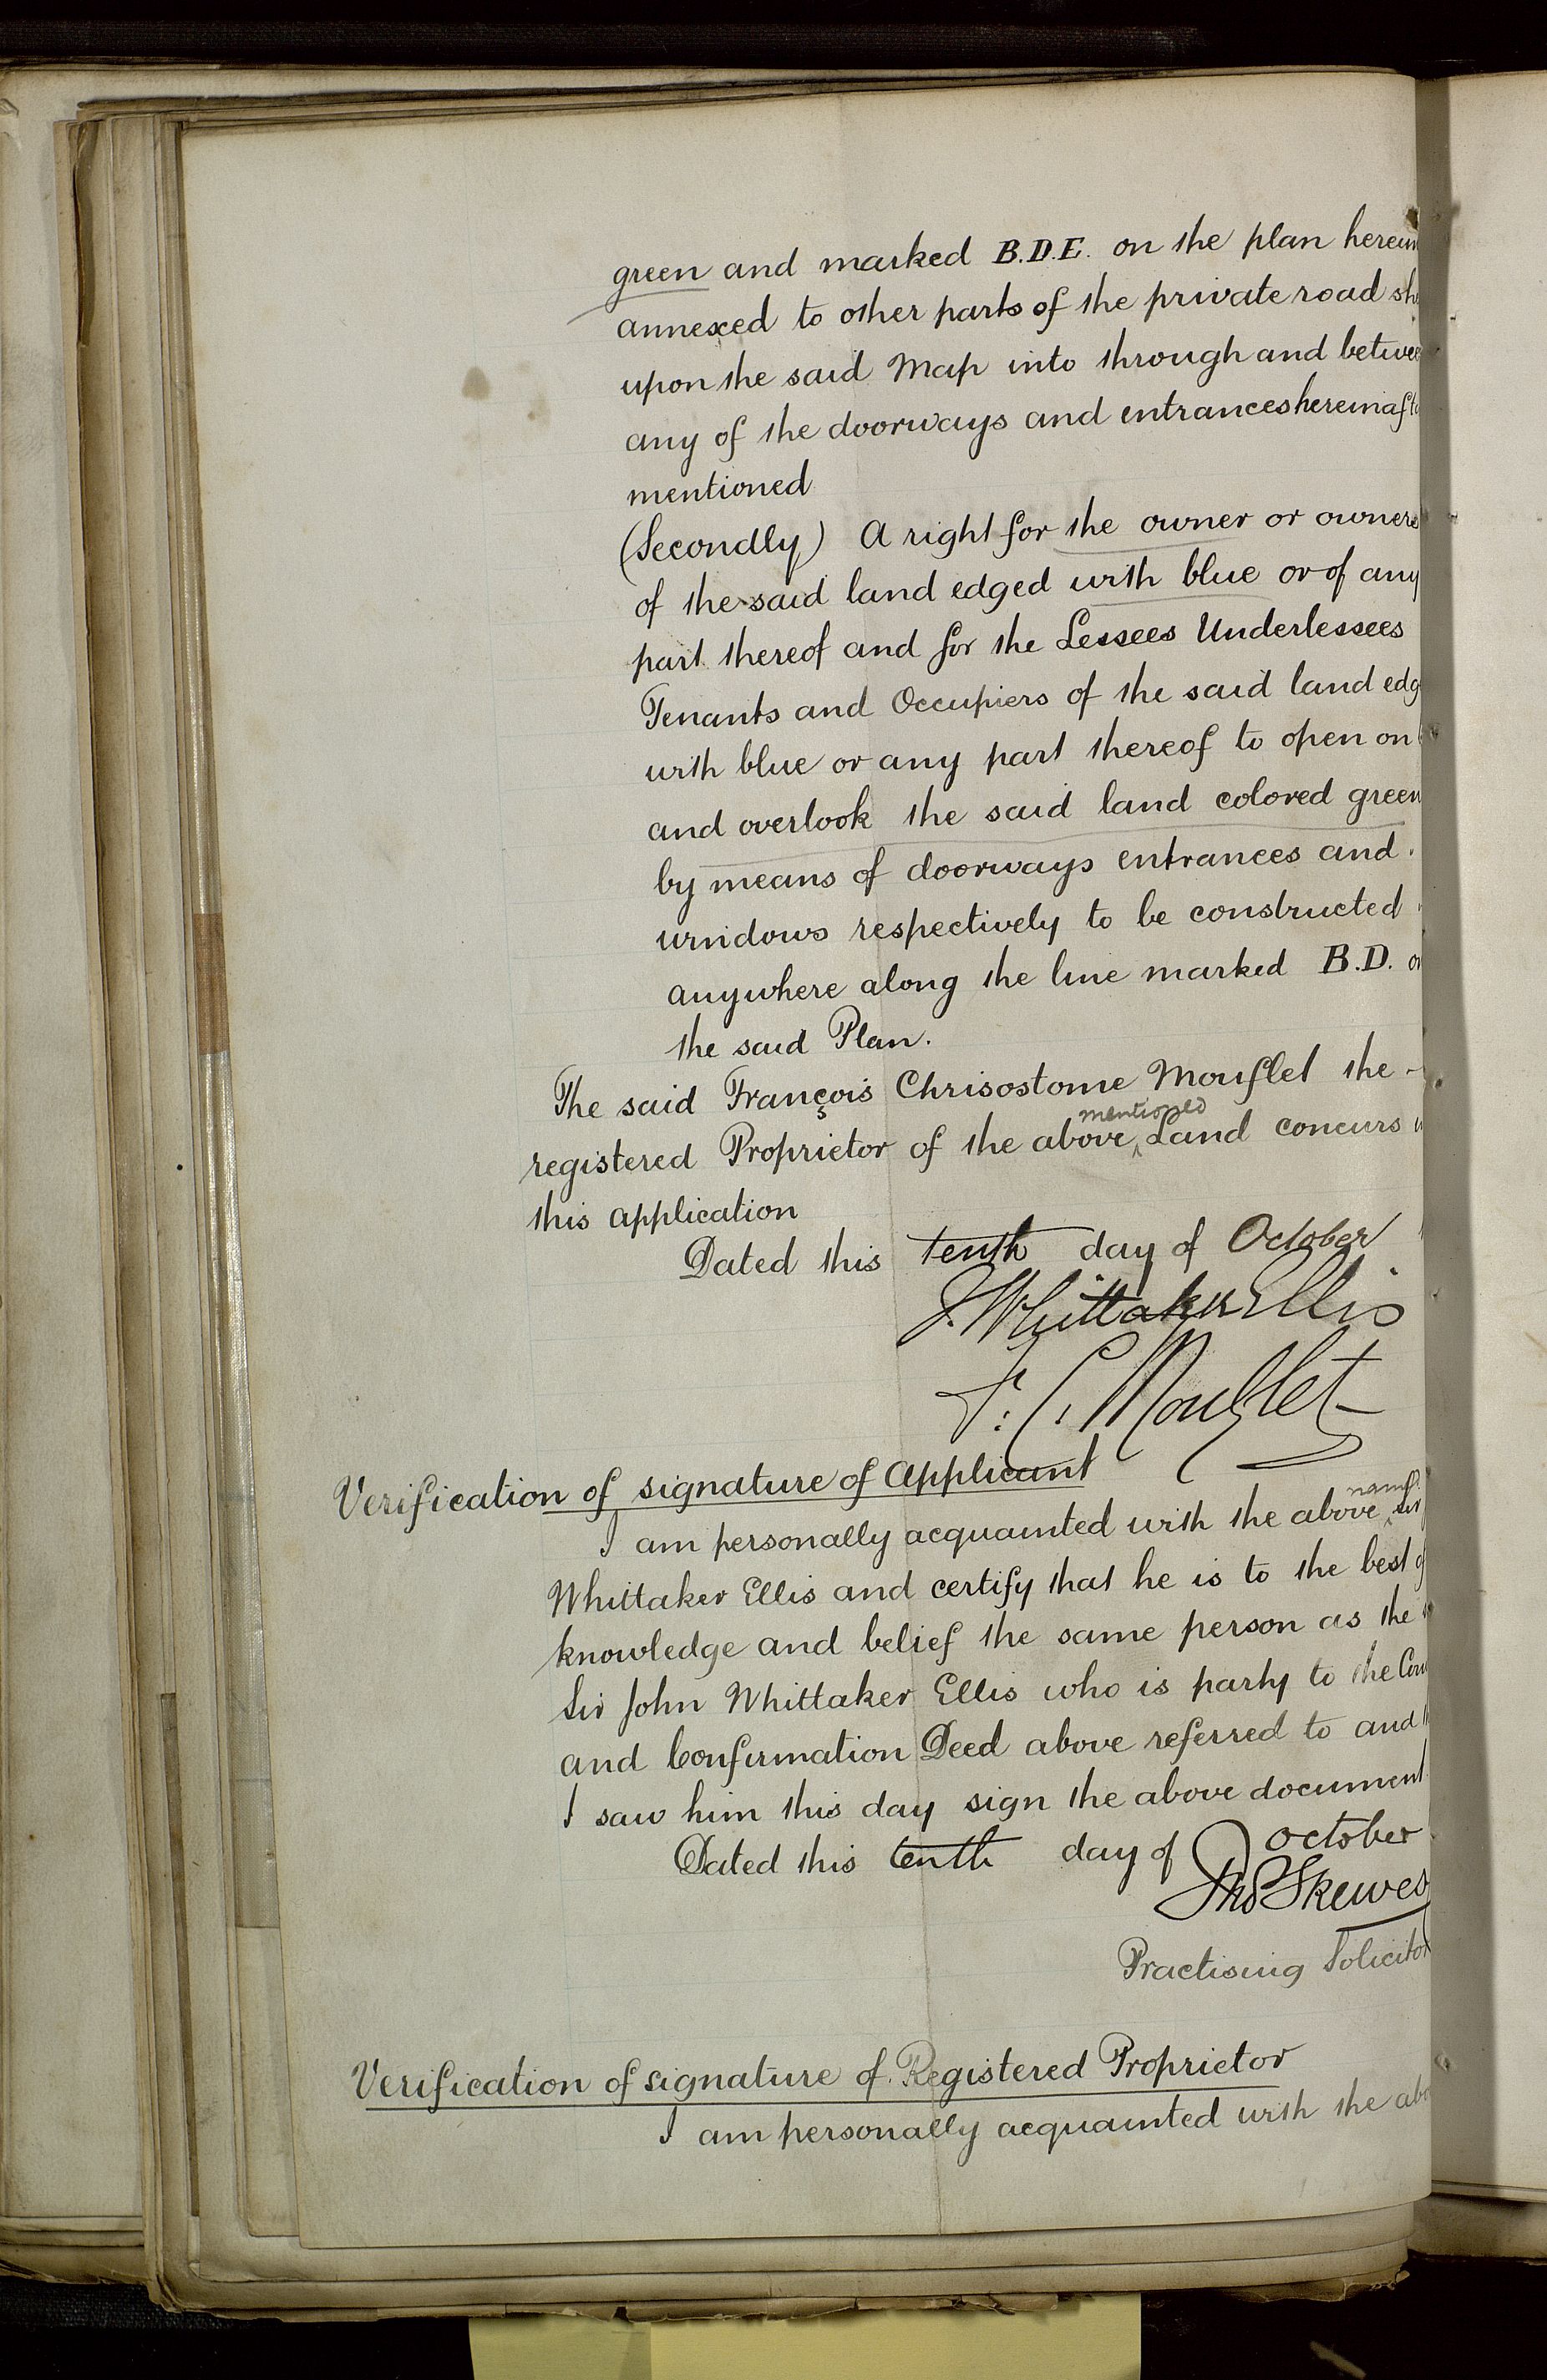 green and marked B.D.E. on the plan herein
annexed to other parts of the private road sh
upon the said Map into through and betwee
any of the doorways and entrances hereinaft
mentioned
(Secondly) A right for the owner or owners
of the said land edged with blue or of any
part thereof and for the Lessees Underlessees
Tenants and Occupiers of the said land edg
with blue or any part thereof to open on
and overlook the said land colored green
by means of doorways entrances and
windows respectively to be constructed
anywhere along the line marked B.D. on
the said Plan.
The said François Chrisostome Mouflet the
registered Proprietor of the above mentioned Land concurs
this application
Dated this tenth day of October
J. Whittaker Ellis
F. C. Mouflet
Verification of signature of Applicant
I am personally acquainted with the above named Sir
Whittaker Ellis and certify that he is to the best of
knowledge and belief the same person as the
Sir John Whittaker Ellis who is party to the Con
and Confirmation Deed above referred to and
I saw him this day sign the above document
Dated this tenth day of October
Thos Skewes
Practising Solicitor
Verification of signature of Registered Proprietor
I am personally acquainted with the abo